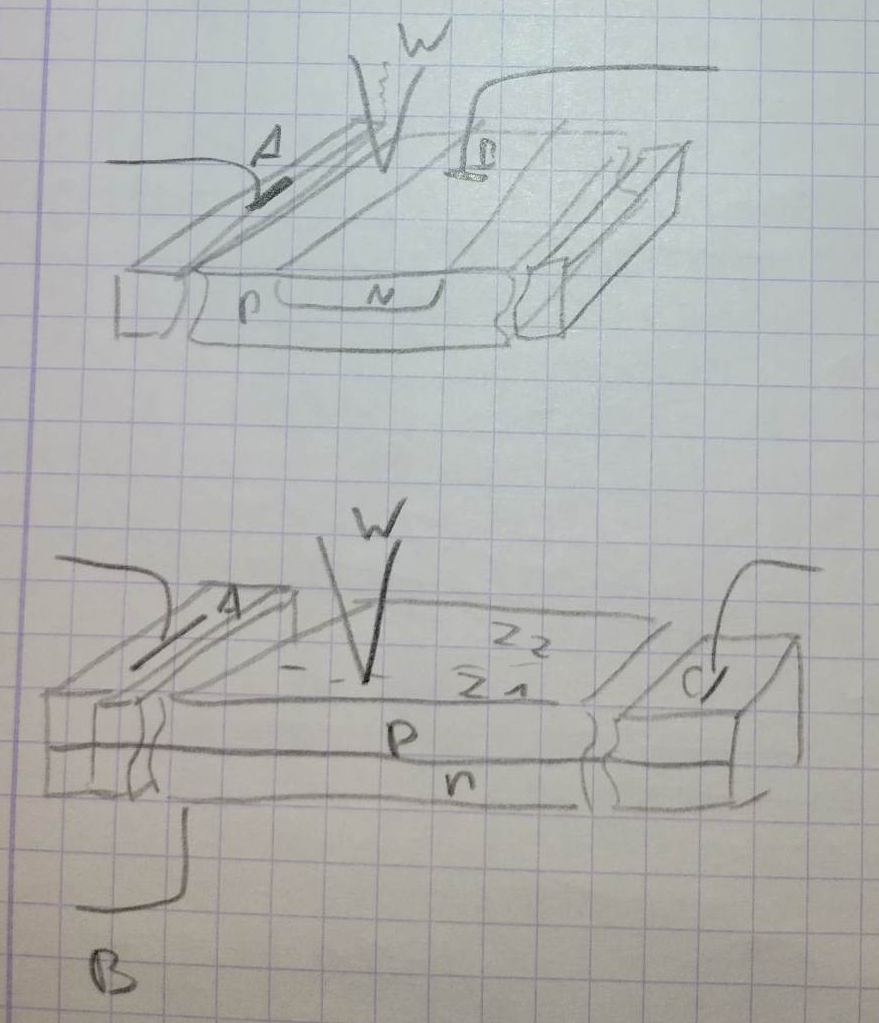 W
A B
P N
W
A
Z2
C
Z1
P
n
B